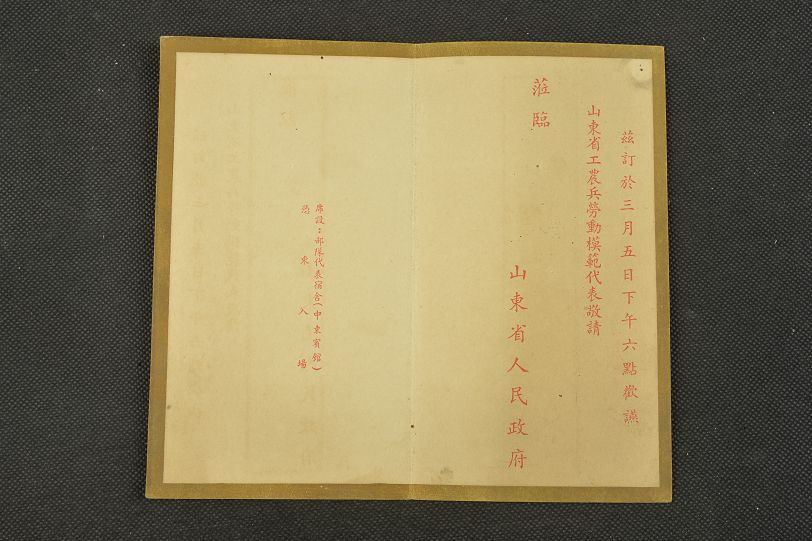 茲訂於三月五日下午六點歡讌
山東省工農兵勞動模範代表敬請
蒞臨
山東省人民政府
席設：部隊代表宿舍(中東賓館)
憑柬入場